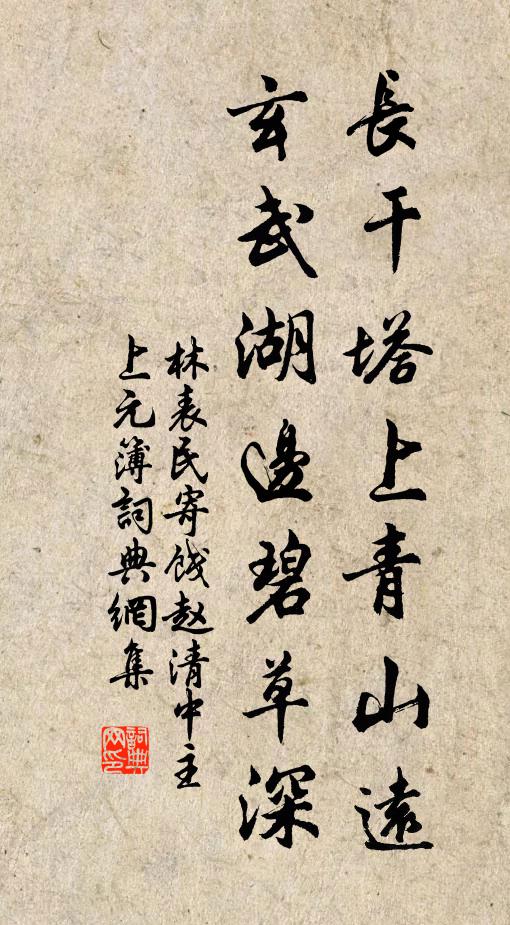 長干塔上青山遠
玄武湖邊碧草深
林表民寄餞赵清中主
上元簿詞典網集
詞典网印